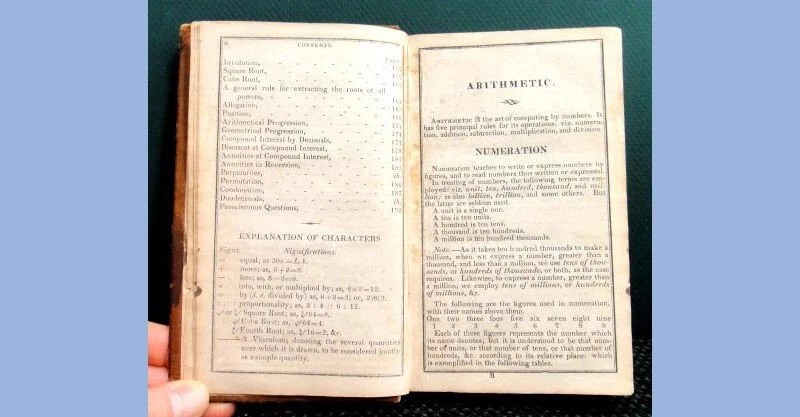 CONTENTS.
Page.
Involution,
Square Root,
Cube Root,
A general rule for extracting the roots of all
powers,
Allegation,
Position,
Arithmetical Progression,
Geometrical Progression,
Compound Interest by Decimals, 177
Discount at Compound Interest, 178
Annuities at Compound Interest, 181
Annuities in Reversion, 185
Perpetuities, ib.
Permutation, 186
Combination, 187
Duodecimals, ib.
Promiscuous Questions, 192
EXPLANATION OF CHARACTERS
Signs. Significations.
= equal; as 20s.=L.1.
+ more; as, 6+2=8.
less; as, 8—2=6.
× into, with, or multiplied by; as, 6×2=12.
÷ by (i. e. divided by) as, 6÷2=3; or, 2)6(3.
: :: : proportionality; as, 2 : 4 :: 6 : 12.
√ or Square Root; as, 64=8.
Cube Root; as, 64=4.
Fourth Root; as, 16=2, &c.
A Vinculum; denoting the several quantities
over which it is drawn, to be considered jointly
as a simple quantity.
ARITHMETIC.
ARITHMETIC is the art of computing by numbers. It
has five principal rules for its operations; viz. numera-
tion, addition, subtraction, multiplication, and division.
NUMERATION
Numeration teaches to write or express numbers by
figures, and to read numbers thus written or expressed.
In treating of numbers, the following terms are em-
ployed: viz. unit, ten, hundred, thousand, and mil-
lion; as also billion, trillion, and some others. But
the latter are seldom used.
A unit is a single one.
A ten is ten units.
A hundred is ten tens.
A thousand is ten hundreds.
A million is ten hundred thousands.
Note.—As it takes ten hundred thousands to make a
million, when we express a number, greater than a
thousand, and less than a million, we use tens of thou-
sands, or hundreds of thousands, or both, as the case
requires. Likewise, to express a number, greater than
a million, we employ tens of millions, or hundreds
of millions, &c.
The following are the figures used in numeration,
with their names above them.
One two three four five six seven eight nine
1 2 3 4 5 6 7 8 9
Each of these figures represents the number which
its name denotes; but it is understood to be that num-
ber of units, or that number of tens, or that number of
hundreds, &c. according to its relative place: which
is exemplified in the following tables.
B